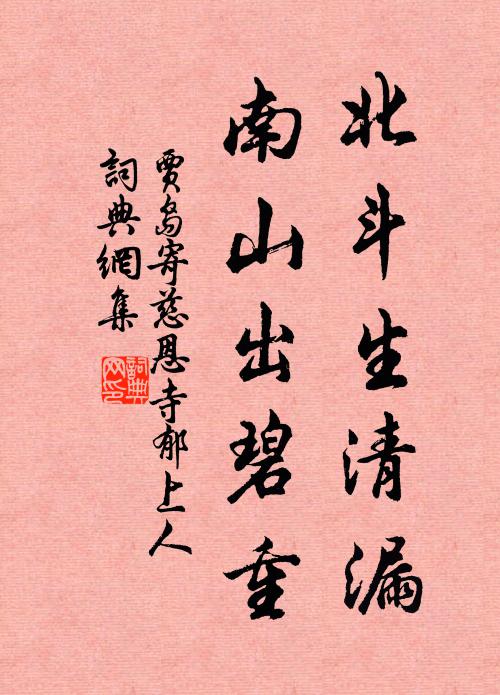 北斗生清漏
南山出碧重
賈島寄慈恩寺郁上人
詞典網集
詞典
网印